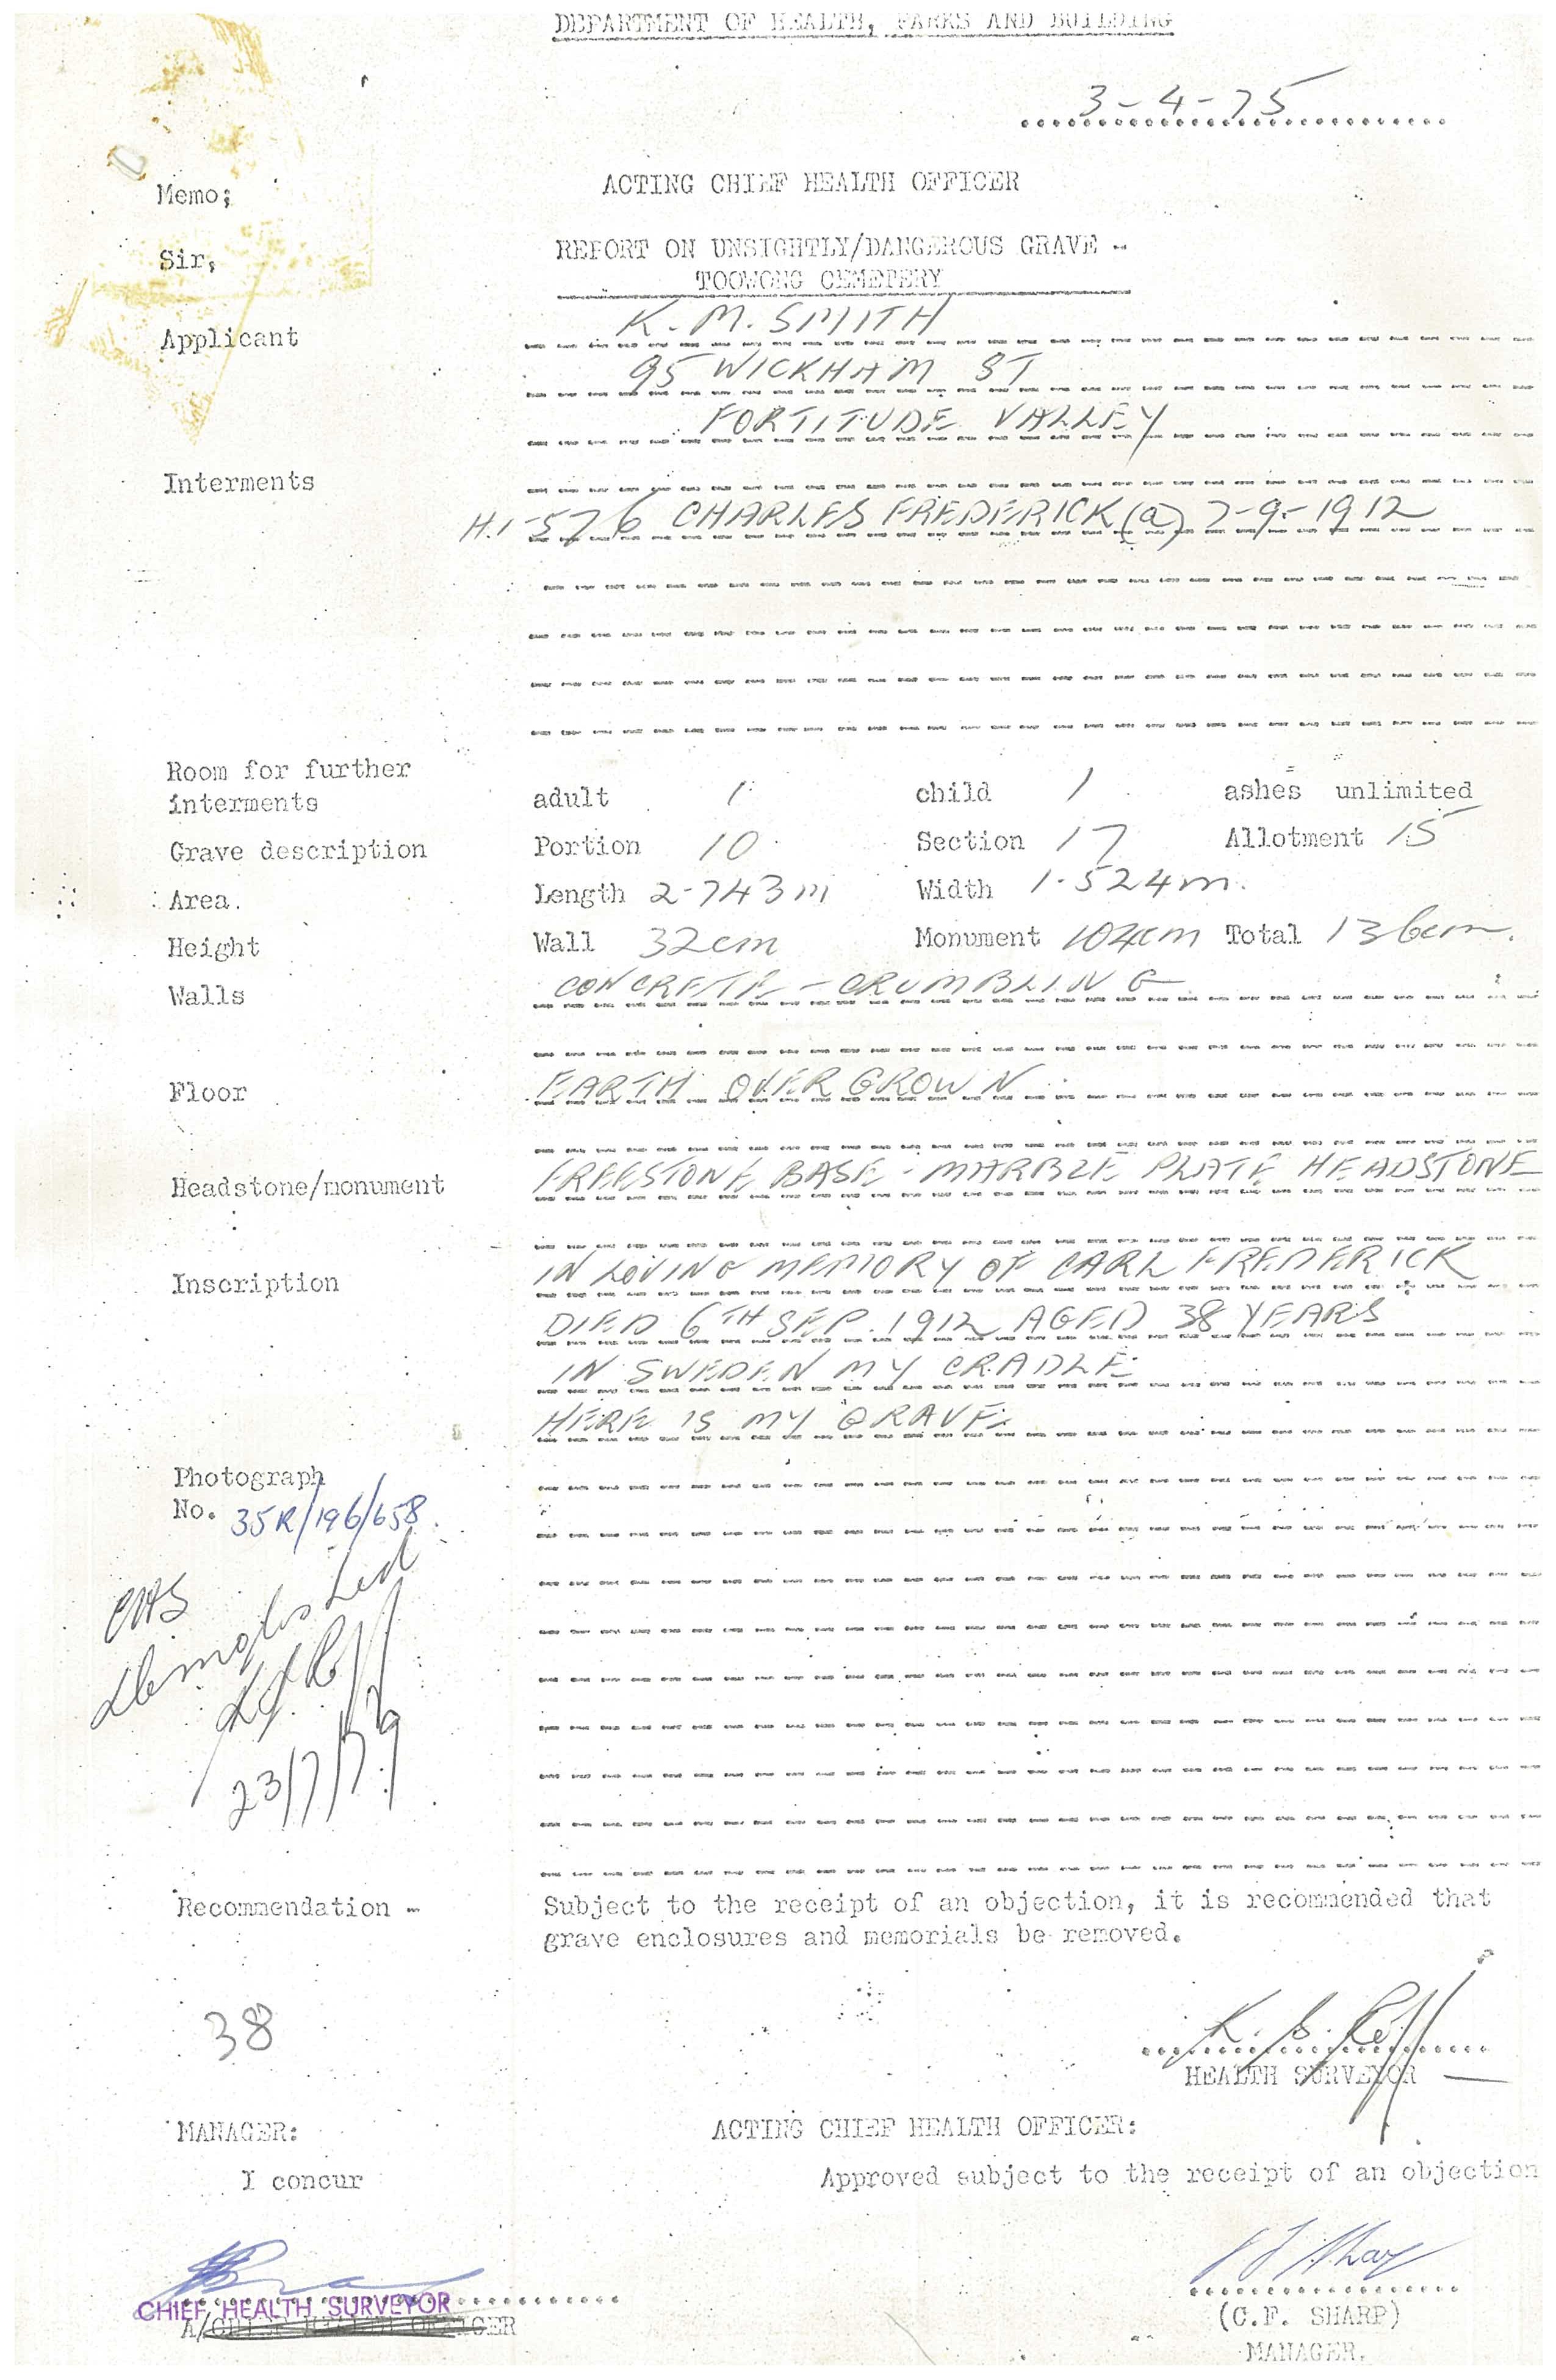 DEPARTMENT OF HEALTH, PARKS AND BUILDING
3-4-75
Memo;
ACTING CHIEF HEALTH OFFICER
Sir,
REPORT ON UNSIGHTLY/DANGEROUS GRAVE -
TOOWONG CEMETERY
Applicant
K. M. SMITH
95 WICKHAM ST
FORTITUDE VALLEY
Interments
H.1-576 CHARLES FREDERICK (a) 7-9-1912
Room for further
interments adult 1 child 1 ashes unlimited
Grave description Portion 10 Section 17 Allotment 15
Area. Length 2.743m Width 1.524m.
Height Wall 32cm Monument 104cm Total 136cm.
Walls CONCRETE - CRUMBLING
Floor EARTH OVERGROWN
Headstone/monument FREESTONE BASE - MARBLE PLATE HEADSTONE
Inscription IN LOVING MEMORY OF CARL FREDERICK
DIED 6TH SEP. 1912 AGED 38 YEARS
IN SWEDEN MY CRADLE
HERE IS MY GRAVE
Photograph
No. 35R/196/658.
23/7/79
Recommendation - Subject to the receipt of an objection, it is recommended that
grave enclosures and memorials be removed.
38
HEALTH SURVEYOR
MANAGER: ACTING CHIEF HEALTH OFFICER:
I concur Approved subject to the receipt of an objection
CHIEF HEALTH SURVEYOR
(C.F. SHARP)
MANAGER.